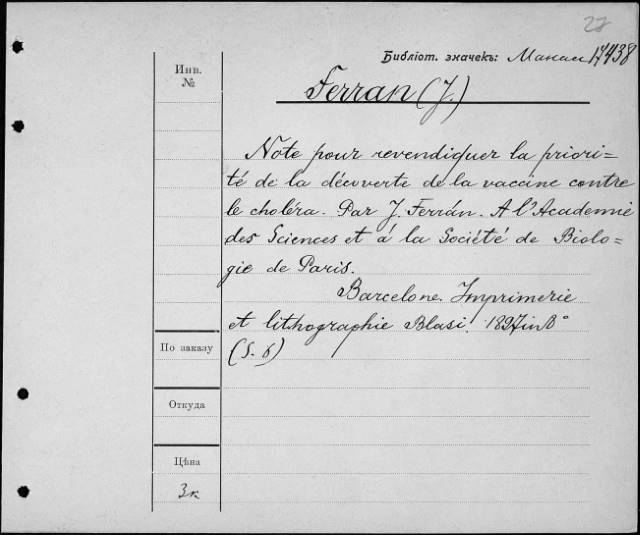 22
Библіот. значекъ: Манасс 17438
Инв.
№
Ferran (J.)
Note pour revendiquer la priori=
té de la découverte de la vaccine contre
le choléra. Par J. Ferrán. A l'Academie
des Sciences et á la Société de Biolo=
gie de Paris.
Barcelone. Imprimerie
et lithographie Blasi. 1897 in 8°
(S. 6)
По заказу
Откуда
Цѣна
3к